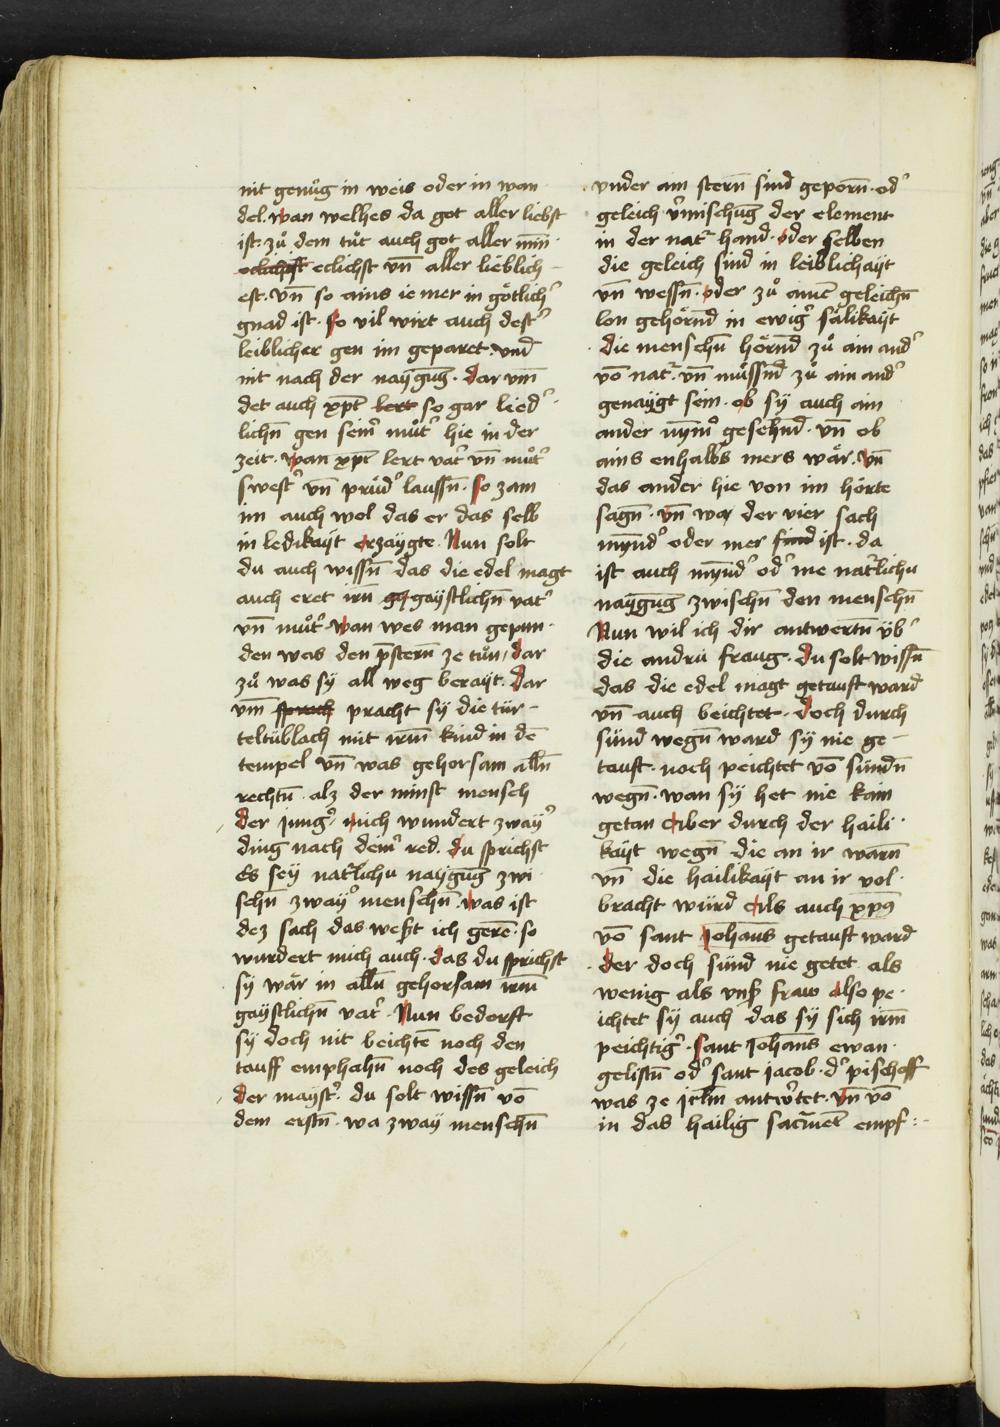 nit genuͦg in weis oder in wan
del. wan welhes da got aller liebst
ist. zuͦ dem tuͤt auch got aller min
eclichst vn̄ aller lieblich
est. vn̄ so ains ie mer in goͤtlich᷑
gnad ist. so vil wirt auch dest᷑
leiblicher gen im geparet. vnd
nit nach der naÿgūg. dar vm̄
det auch xp̄t lert so gar lied᷑
lichn̄ gen sein᷑ muͦt᷑ hie in der
zeit. wan xp̄t lert vat᷑ vn̄ muͦt᷑
swest᷑ vn̄ pruͤd᷑ laussn̄. so zam
im auch wol das er das selb
in ledikaÿt erzaÿgte. Nun solt
du auch wissn̄ das die edel magt
auch eret irn̄ gaÿstlichn̄ vat᷑
vn̄ muͦt᷑. wan wes man gepun
den was den p̄stern̄ ze tuͦn, dar
zuͦ was sÿ all weg beraÿt. Dar
vm̄ sprach pracht sÿ die tür
teltüblach mit irm̄ kind in dē
tempel vn̄ was gehorsam alln̄
rechtn̄. alz der minst mensch
Der Jung᷑, mich wundert zwaÿ᷑
ding nach deim᷑ red. du sprichst
Es seÿ nat᷑lichu naÿgūg zwi
schn̄ zwaÿ᷑ menschn̄. was ist
dez sach das west ich gerē. so
wundert mich auch. das du sprichst
sÿ waͤr in alln̄ gehorsam irm̄
gaÿstlichn̄ vat᷑. Nun bedorft
sÿ doch nit beichtē noch den
tauff emphahn̄ noch des geleich
Der maÿst᷑. du solt wissn̄ vō
dem erstn̄. wa zwaÿ menschn̄
vnder am stern̄ sind geporn̄. od᷑
geleich v᷑mischūg der element
in der nat᷑ hand. oder selben
die geleich sind in leiblichaÿt
vn̄ wessn̄. oder zuͦ ainē geleichn̄
lon gehoͤrnd in ewig᷑ saͤlikaÿt
die menschn̄ hoͤrnd zuͦ ain and᷑
vō nat᷑. vn̄ muͤssnd zuͦ ain and᷑
genaÿgt sein. ob sÿ auch ain
ander nÿm᷑ gesehnd. vn̄ ob
ains enhalbs mers waͤr. vn̄
das ander hie von im hoͤrte
sagn̄. vn̄ wa der vier sach
mÿnd᷑ oder mer sind ist. da
ist auch mÿnd᷑ od᷑ me nat᷑lichu
naÿgūg zwischn̄ den menschn̄
Nun wil ich dir antwertn̄ üb᷑
die andrü fraug. Du solt wissn̄
das die edel magt getauft ward
vn̄ auch beichtet. doch durch
sünd wegn̄ ward sÿ nie ge
tauft. noch peichtet vō sündn̄
wegn̄. wan sÿ het nie kain
getan Aber durch der haili
kaÿt wegn̄ die an ir warn̄
vn̄ die hailikaÿt an ir vol
bracht würd Als auch xp̄s
vō sant Johans getauft ward
der doch sünd nie getet als
wenig als vns᷑ fraw also pe
ichtet sÿ auch das sÿ sich irm̄
peichtig᷑. sant Johans ewan
gelistn̄ od᷑ sant jacob. d᷑ pischoff
was ze jrl̄m antw᷑tet. vn̄ vō
in das hailig sacr̄met empf